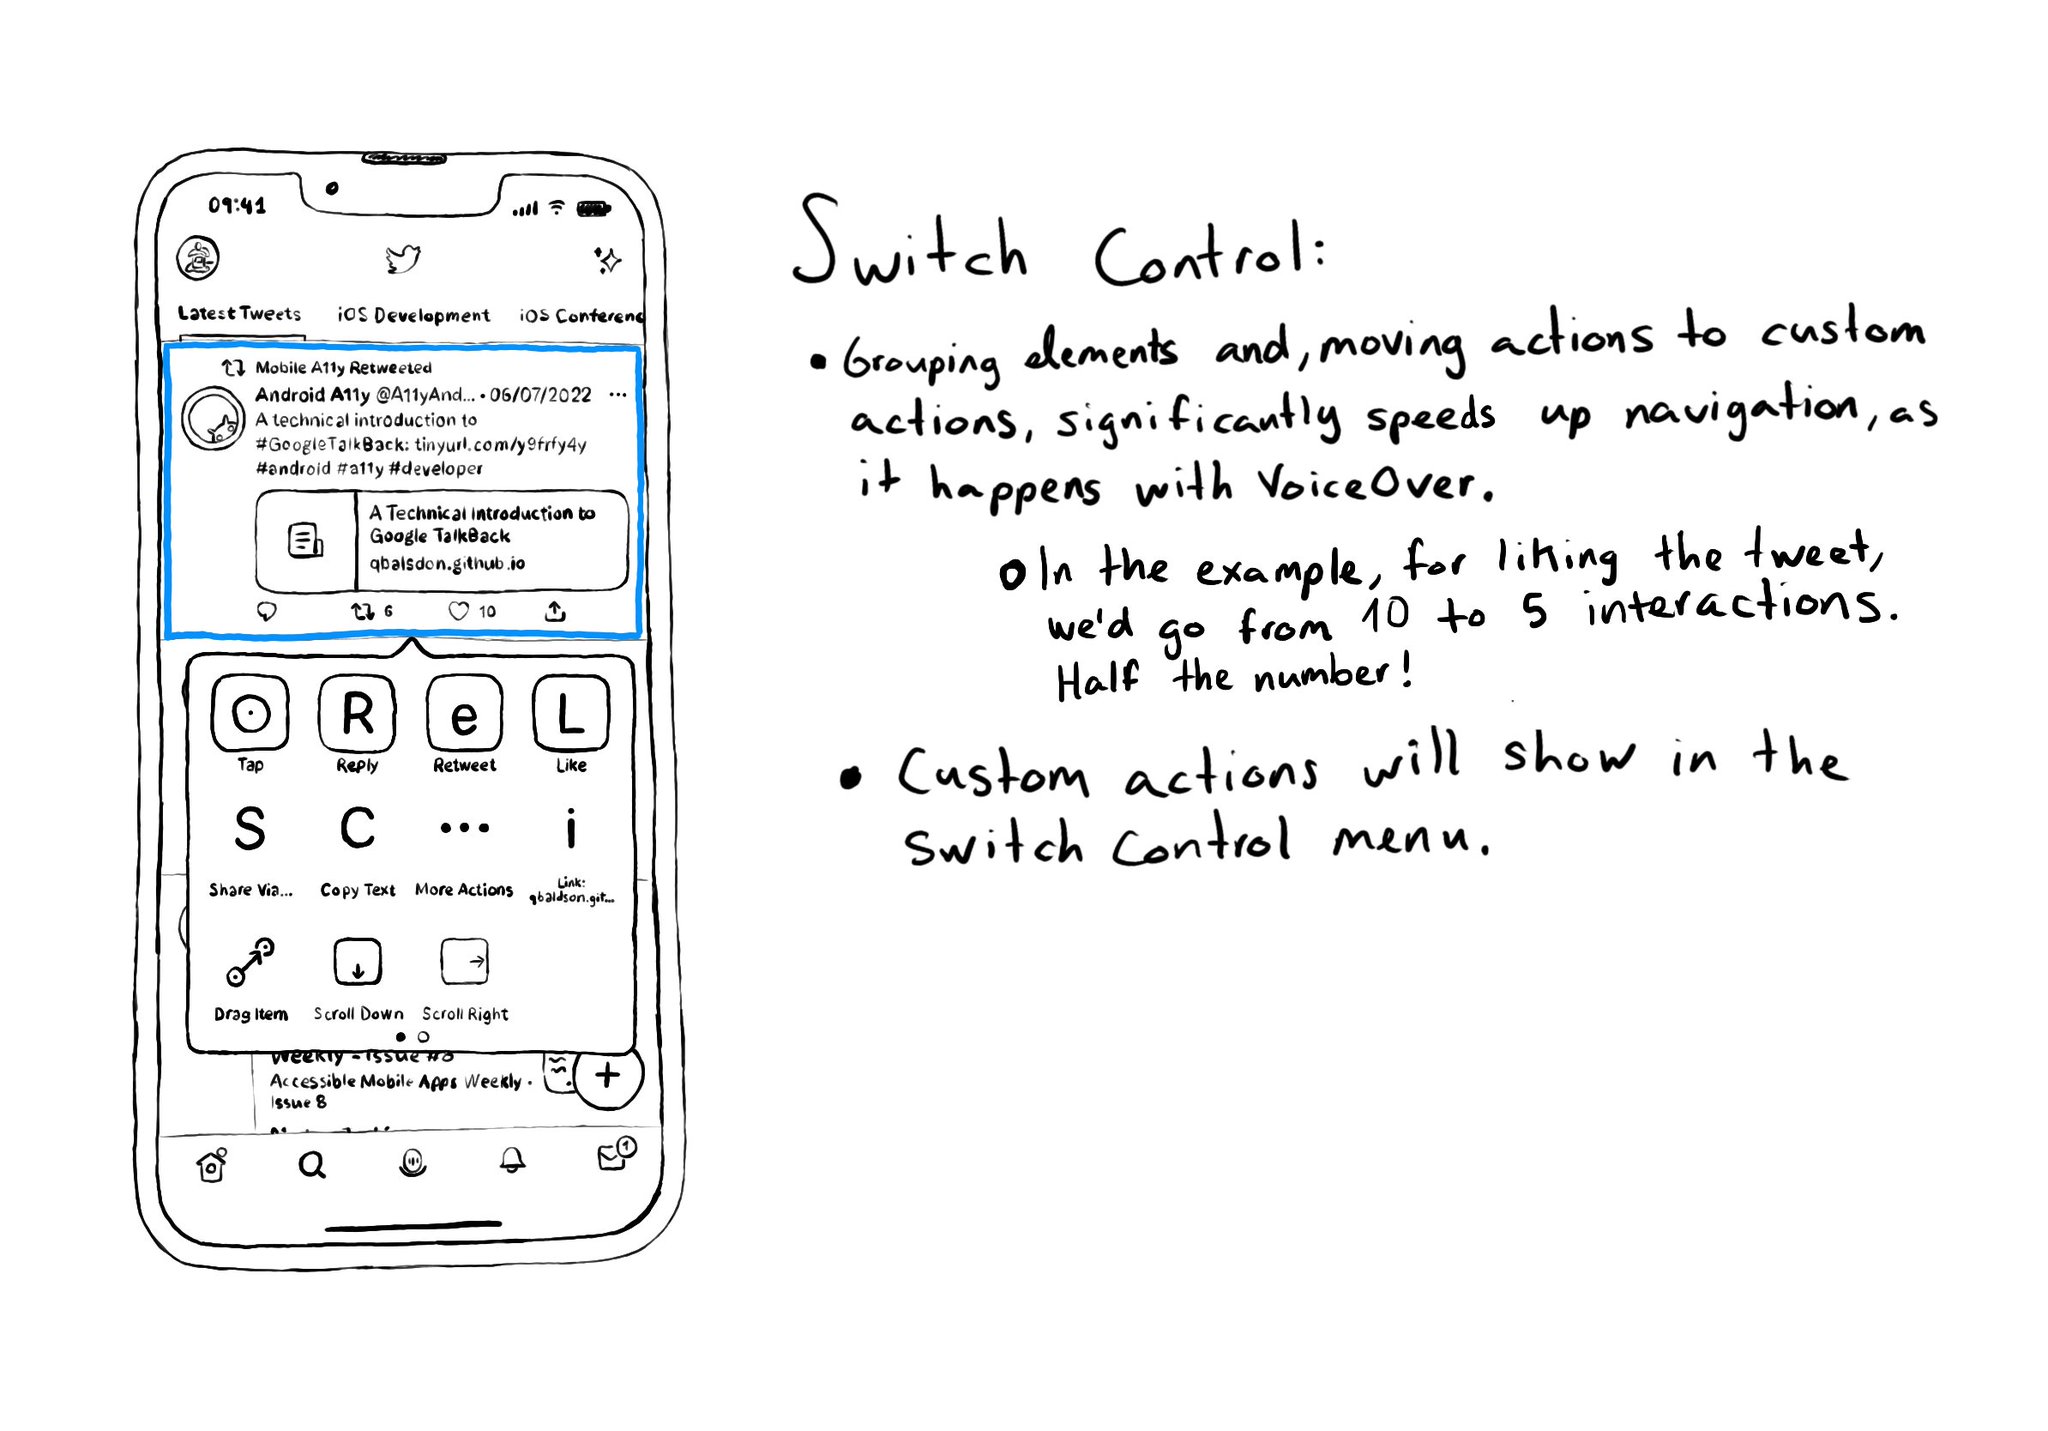 09:41
Latest Tweets iOS Development iOS Conferenc
Mobile A11y Retweeted
Android A11y @A11yAnd... • 06/07/2022 ...
A technical introduction to
#GoogleTalkBack: tinyurl.com/y9frfy4y
#android #a11y #developer
A Technical Introduction to
Google TalkBack
qbalsdon.github.io
6 10
R e L
Tap Reply Retweet Like
S C ... i
Share Via... Copy Text More Actions Link:
qbaldson.git...
Drag Item Scroll Down Scroll Right
Weekly - Issue #8
Accessible Mobile Apps Weekly •
Issue 8
+
1
Switch Control:
• Grouping elements and, moving actions to custom
actions, significantly speeds up navigation, as
it happens with VoiceOver.
o In the example, for liking the tweet,
we'd go from 10 to 5 interactions.
Half the number!
• Custom actions will show in the
Switch Control menu.